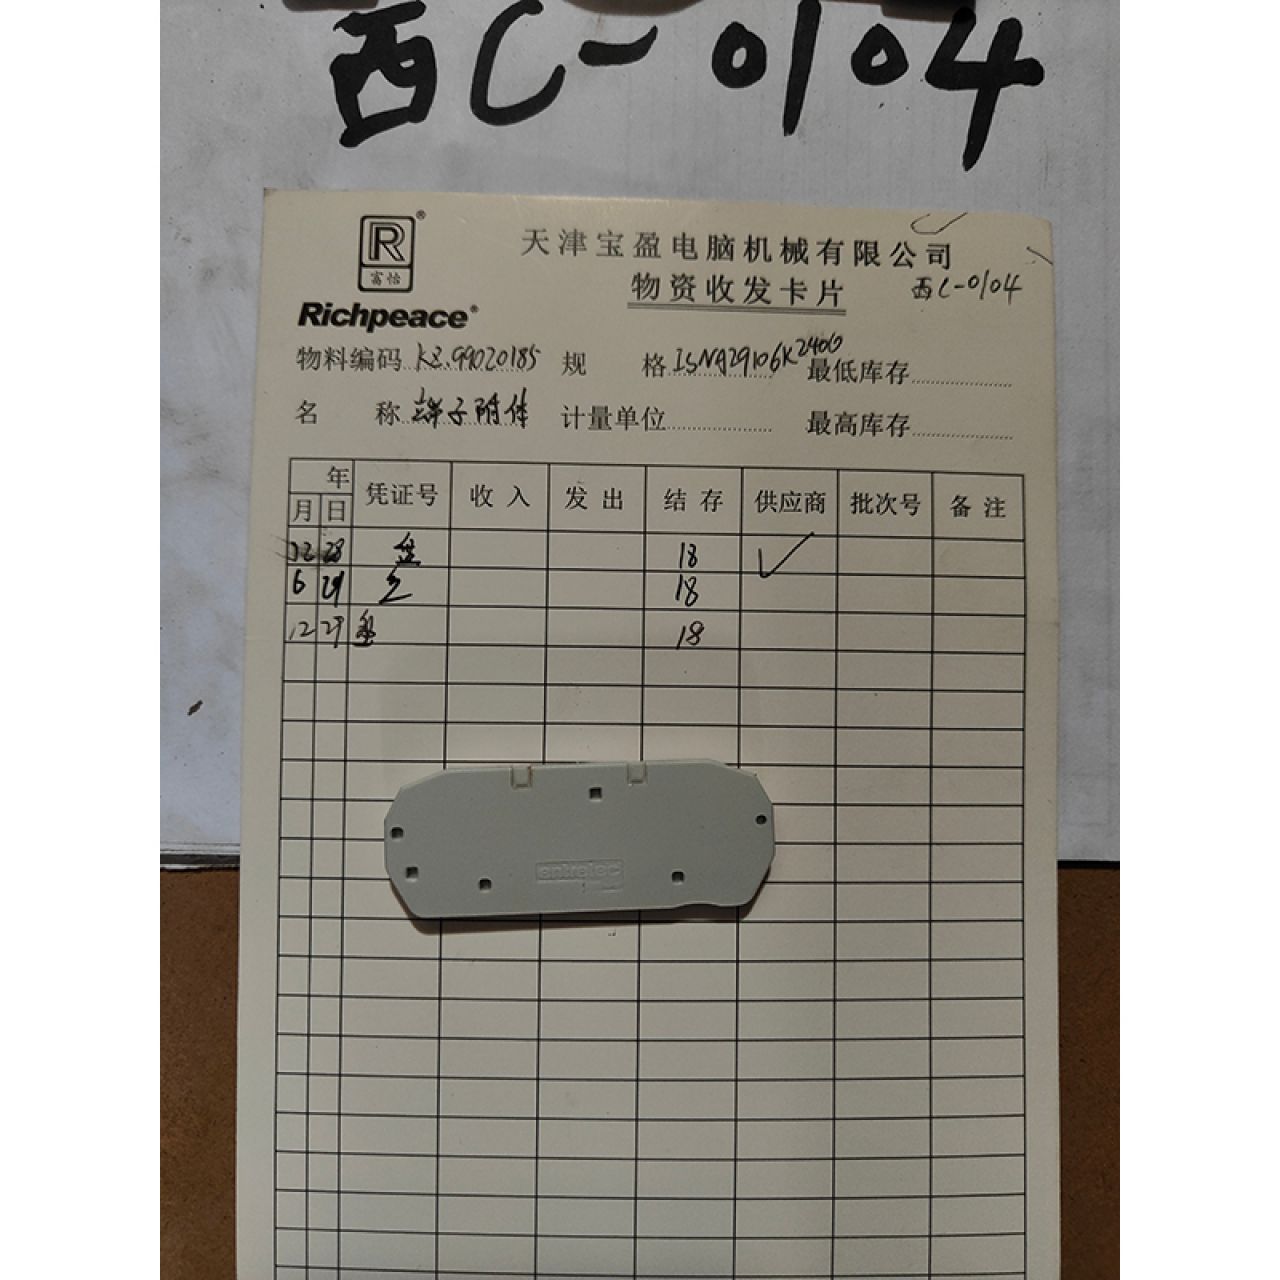 西C-0104
R®
富怡
Richpeace®
天津宝盈电脑机械有限公司
物资收发卡片 西C-0104
物料编码 KZ.99020185 规 格 1SNA29106K2400 最低库存
名 称 端子附件 计量单位 最高库存
年
月 日 凭证号 收入 发出 结存 供应商 批次号 备注
12 28 盘 18 ✓
6 29 18
12 29 盘 18
entrelec